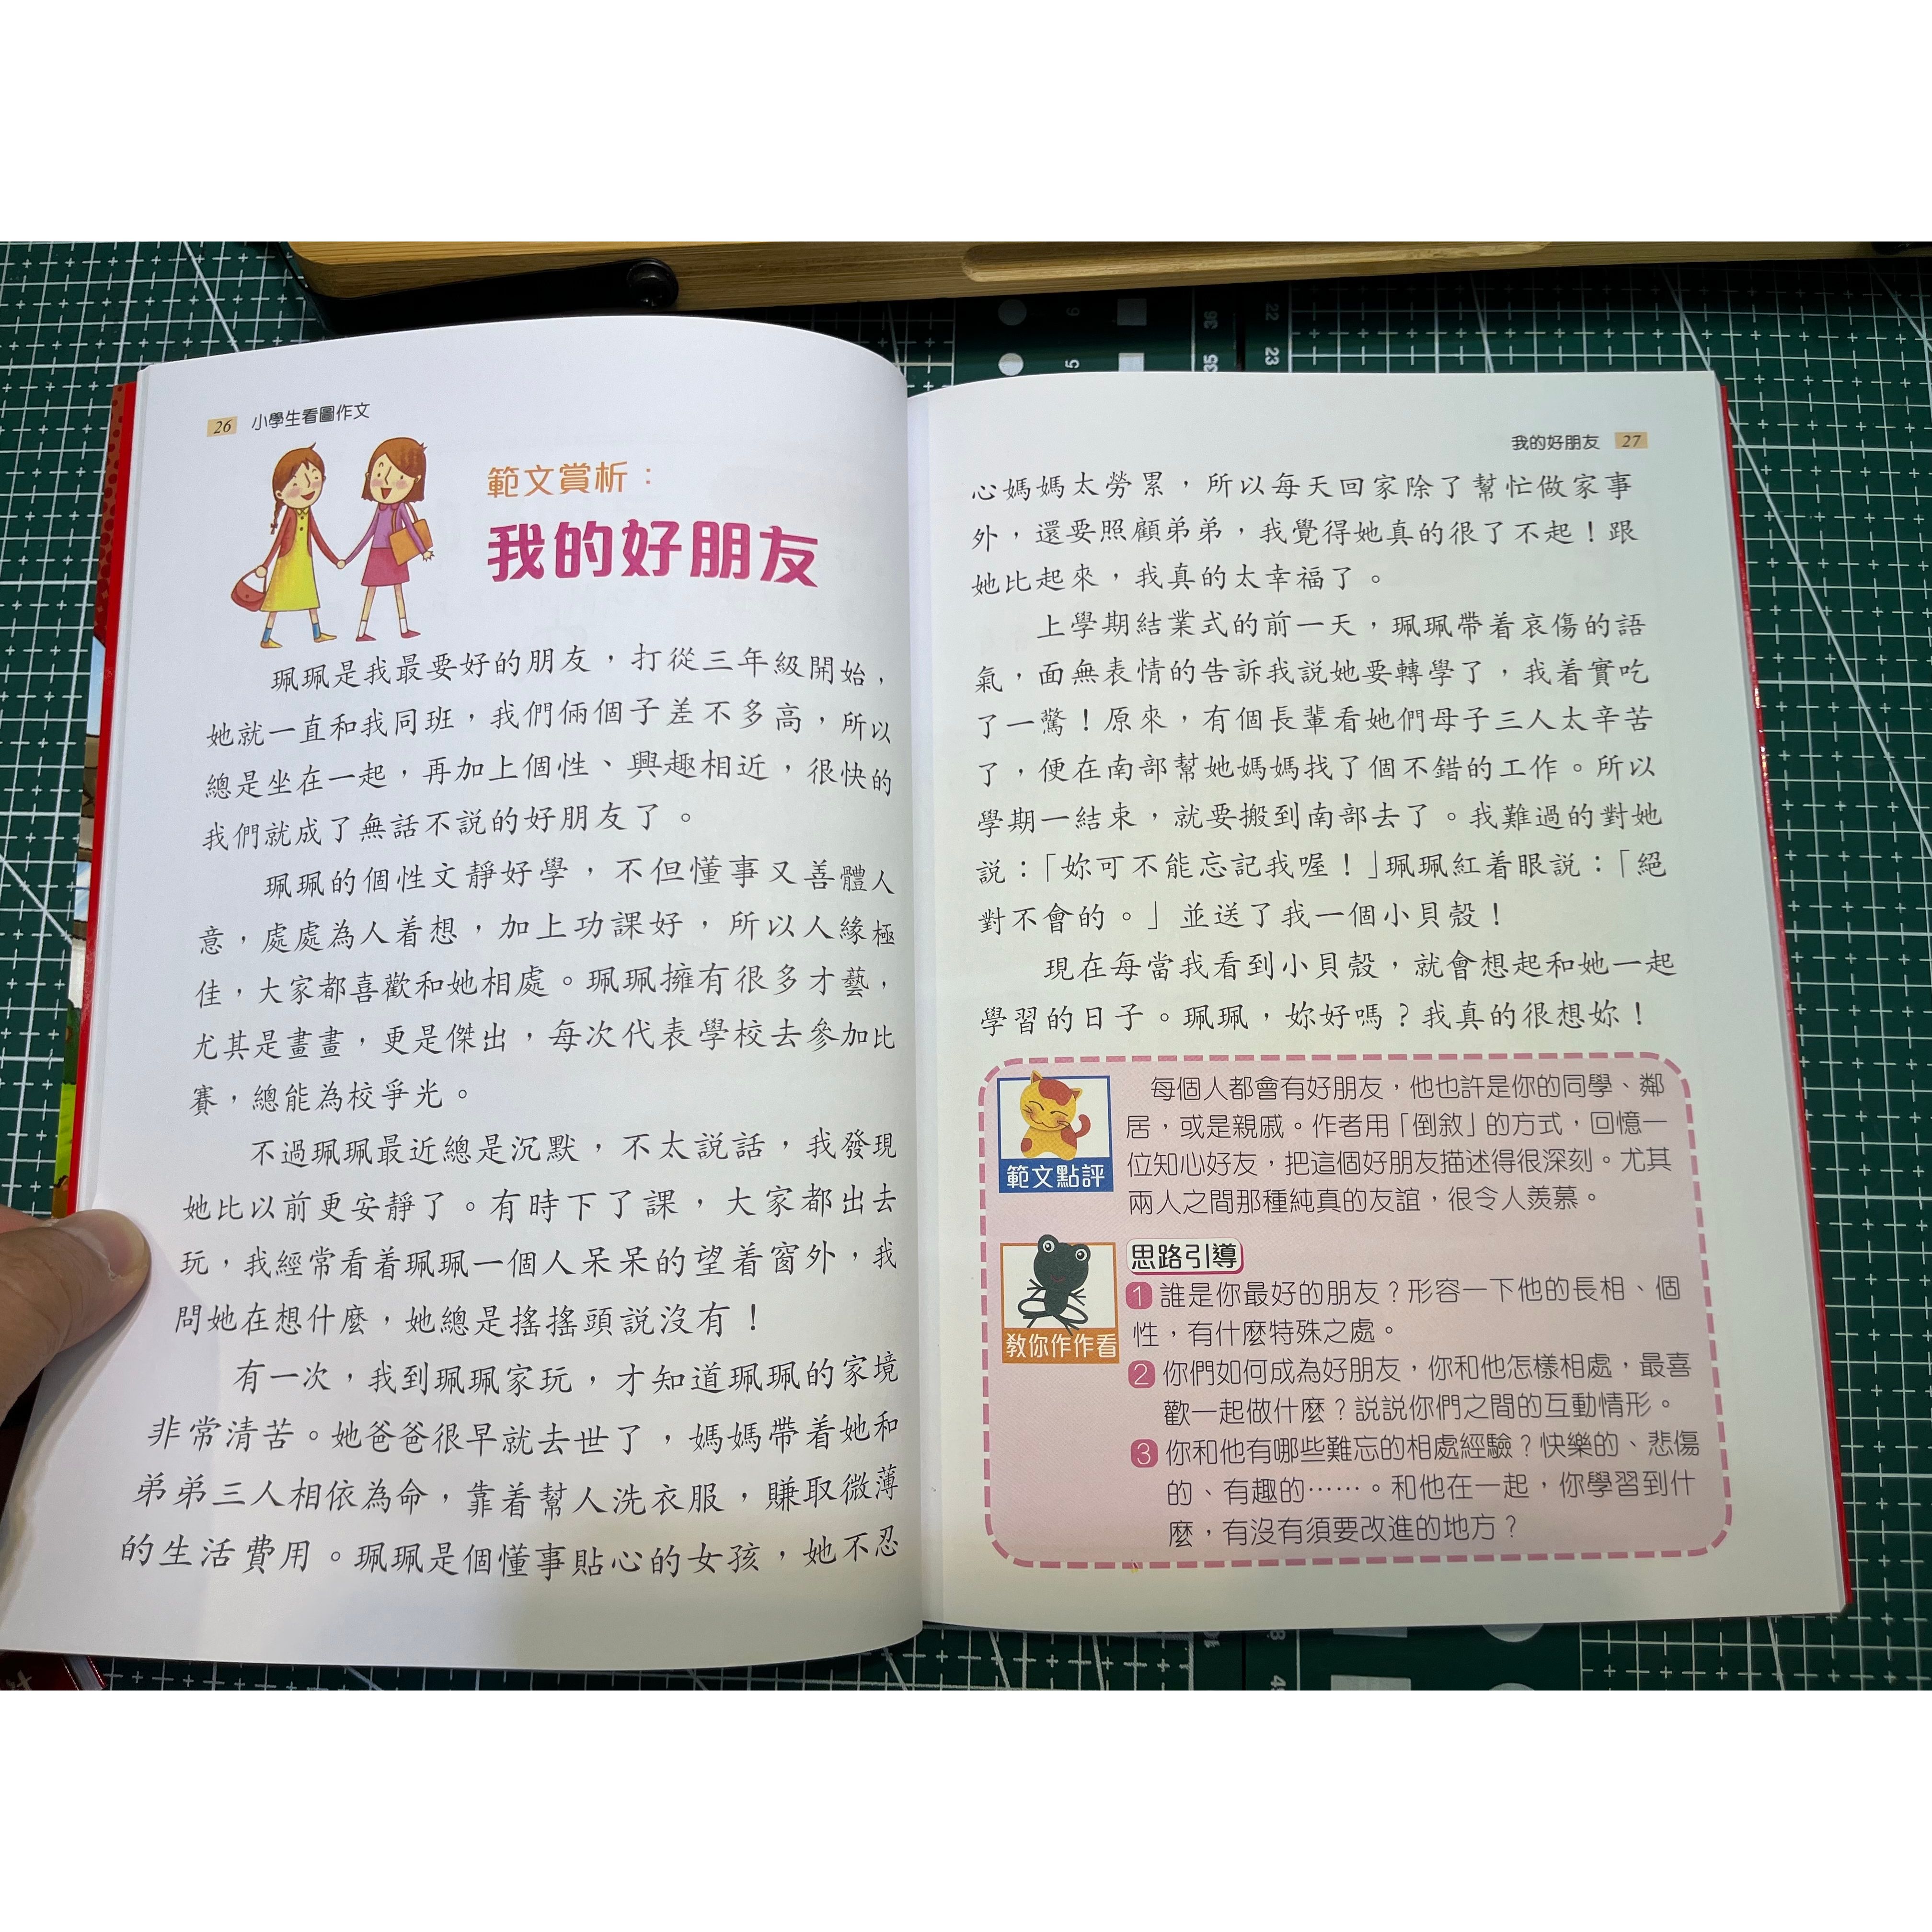 26 小學生看圖作文
範文賞析：
我的好朋友
珮珮是我最要好的朋友，打從三年級開始，
她就一直和我同班，我們倆個子差不多高，所以
總是坐在一起，再加上個性、興趣相近，很快的
我們就成了無話不說的好朋友了。
珮珮的個性文靜好學，不但懂事又善體人
意，處處為人着想，加上功課好，所以人緣極
佳，大家都喜歡和她相處。珮珮擁有很多才藝，
尤其是畫畫，更是傑出，每次代表學校去參加比
賽，總能為校爭光。
不過珮珮最近總是沉默，不太說話，我發現
她比以前更安靜了。有時下了課，大家都出去
玩，我經常看着珮珮一個人呆呆的望着窗外，我
問她在想什麼，她總是搖搖頭說沒有！
有一次，我到珮珮家玩，才知道珮珮的家境
非常清苦。她爸爸很早就去世了，媽媽帶着她和
弟弟三人相依為命，靠着幫人洗衣服，賺取微薄
的生活費用。珮珮是個懂事貼心的女孩，她不忍
我的好朋友 27
心媽媽太勞累，所以每天回家除了幫忙做家事
外，還要照顧弟弟，我覺得她真的很了不起！跟
她比起來，我真的太幸福了。
上學期結業式的前一天，珮珮帶着哀傷的語
氣，面無表情的告訴我說她要轉學了，我着實吃
了一驚！原來，有個長輩看她們母子三人太辛苦
了，便在南部幫她媽媽找了個不錯的工作。所以
學期一結束，就要搬到南部去了。我難過的對她
說：「妳可不能忘記我喔！」珮珮紅着眼說：「絕
對不會的。」並送了我一個小貝殼！
現在每當我看到小貝殼，就會想起和她一起
學習的日子。珮珮，妳好嗎？我真的很想妳！
範文點評
每個人都會有好朋友，他也許是你的同學、鄰
居，或是親戚。作者用「倒敘」的方式，回憶一
位知心好友，把這個好朋友描述得很深刻。尤其
兩人之間那種純真的友誼，很令人羨慕。
教你作作看
思路引導
1 誰是你最好的朋友？形容一下他的長相、個
性，有什麼特殊之處。
2 你們如何成為好朋友，你和他怎樣相處，最喜
歡一起做什麼？說說你們之間的互動情形。
3 你和他有哪些難忘的相處經驗？快樂的、悲傷
的、有趣的……。和他在一起，你學習到什
麼，有沒有須要改進的地方？
6
5
36
35
22
23